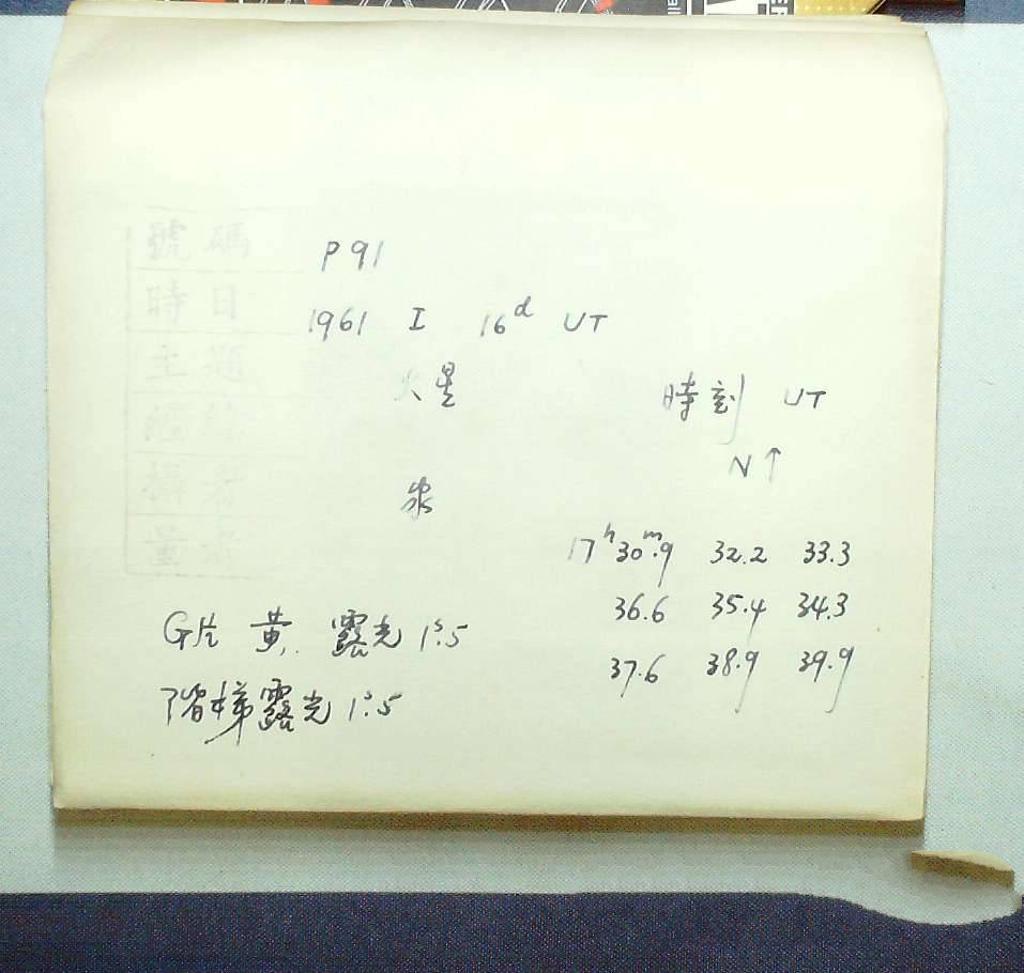 P 91
1961 I 16d UT
火星
時刻 UT
N↑
17h30m.9 32.2 33.3
36.6 35.4 34.3
37.6 38.9 39.9
G片 黄 露光 1s.5
階梯露光 1s.5
號碼
時日
主題